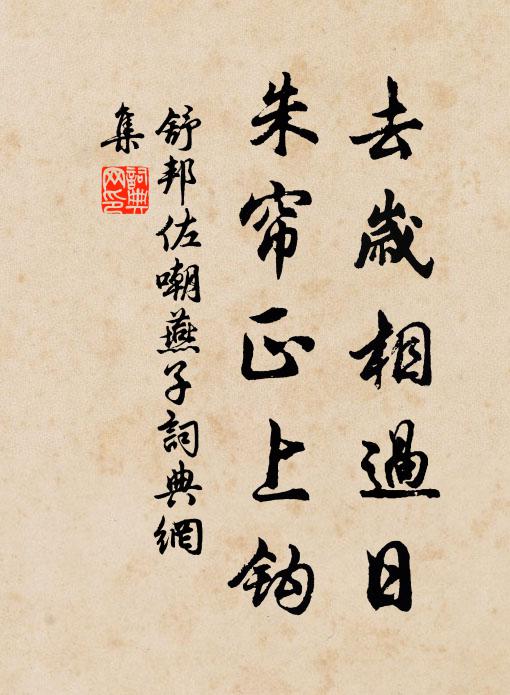 去歲相過日
朱帘正上鈎
舒邦佐嘲燕子詞典網
集
詞典
网印